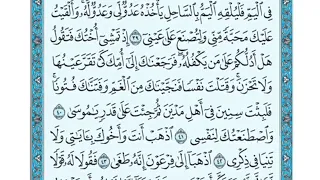 فِى الْيَمِّ فَلْيُلْقِهِ الْيَمُّ بِالسَّاحِلِ يَأْخُذْهُ عَدُوٌّ لِّى وَعَدُوٌّ لَّهُۥ وَأَلْقَيْتُ
عَلَيْكَ مَحَبَّةً مِّنِّى وَلِتُصْنَعَ عَلَىٰ عَيْنِىٓ ٣٩ إِذْ تَمْشِىٓ أُخْتُكَ فَتَقُولُ
هَلْ أَدُلُّكُمْ عَلَىٰ مَن يَكْفُلُهُۥ فَرَجَعْنَٰكَ إِلَىٰٓ أُمِّكَ كَىْ تَقَرَّ عَيْنُهَا
وَلَا تَحْزَنَ وَقَتَلْتَ نَفْسًا فَنَجَّيْنَٰكَ مِنَ الْغَمِّ وَفَتَنَّٰكَ فُتُونًا
فَلَبِثْتَ سِنِينَ فِىٓ أَهْلِ مَدْيَنَ ثُمَّ جِئْتَ عَلَىٰ قَدَرٍ يَٰمُوسَىٰ ٤٠
وَاصْطَنَعْتُكَ لِنَفْسِى ٤١ اذْهَبْ أَنتَ وَأَخُوكَ بِـَٔايَٰتِى وَلَا
تَنِيَا فِى ذِكْرِى ٤٢ اذْهَبَآ إِلَىٰ فِرْعَوْنَ إِنَّهُۥ طَغَىٰ ٤٣ فَقُولَا لَهُۥ قَوْلًا